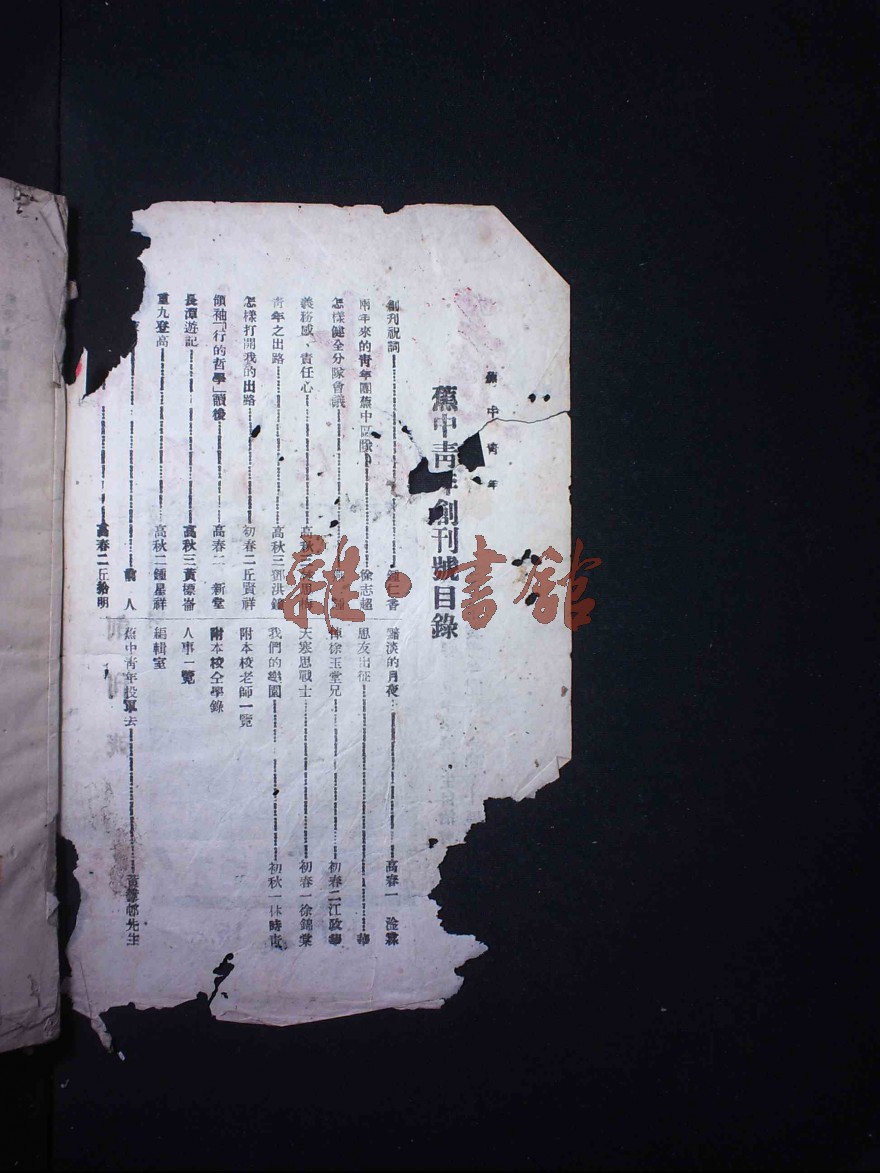 蕉中青年
蕉中青年創刊號目錄
創刊祝詞 鍾 香
兩年來的青年團蕉中區隊 徐志超
怎樣健全分隊會議
義務感、責任心 高秋
青年之出路 高秋三鄧洪
怎樣打開我的出路 初春二丘賢祥
領袖「行的哲學」讀後 高春二 新堂
長潭遊記 高秋三黃標崙
重九登高 高秋二鍾星祥
人
高春二丘 明
黯淡的月夜 高春一 淦霖
思友出征 華
悼徐玉堂兄 初春二江政華
天寒思戰士 初春一徐錦棠
我們的樂園 初秋一林時
附本校老師一覽
附本校仝學錄
人事一覽
編輯室
蕉中青年投軍去 黃 先生
雜·書館